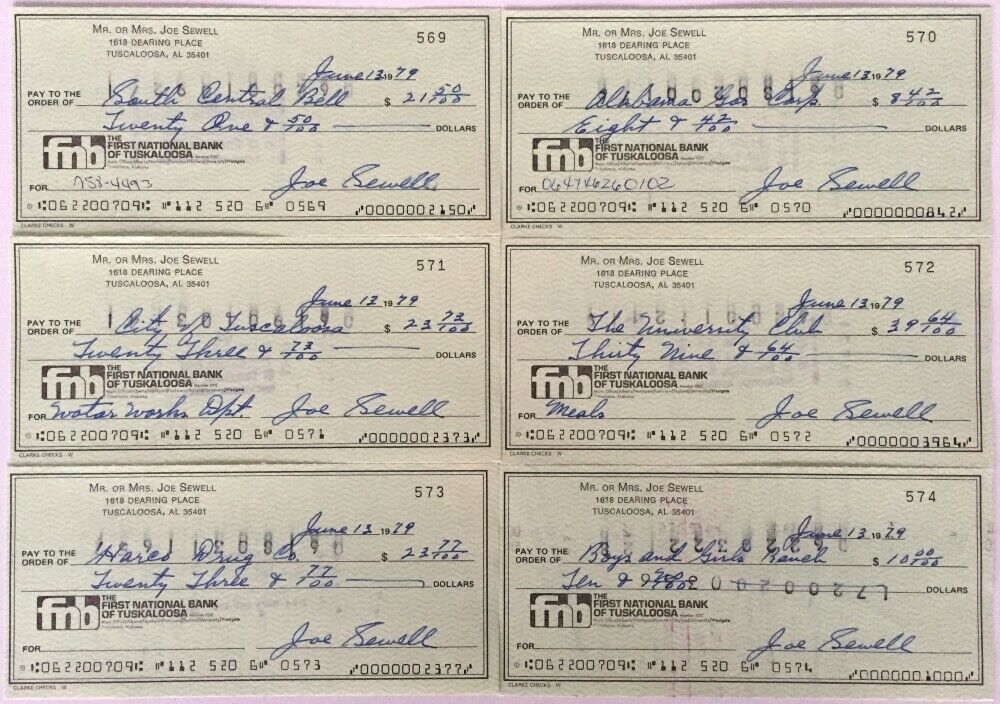 MR. OR MRS. JOE SEWELL
1618 DEARING PLACE
TUSCALOOSA, AL 35401
569
June 13 1979
PAY TO THE ORDER OF South Central Bell $ 21 50/100
Twenty One & 50/100 DOLLARS
fnb THE FIRST NATIONAL BANK OF TUSKALOOSA Member FDIC
FOR 758-4493 Joe Sewell
⑆062200709⑆ ⑈112 520 6⑈ 0569 ⑈0000002150⑈
CLARKE CHECKS W
MR. OR MRS. JOE SEWELL
1618 DEARING PLACE
TUSCALOOSA, AL 35401
570
June 13 1979
PAY TO THE ORDER OF Alabama Gas Corp. $ 8 42/100
Eight & 42/100 DOLLARS
fnb THE FIRST NATIONAL BANK OF TUSKALOOSA Member FDIC
FOR 064746260102 Joe Sewell
⑆062200709⑆ ⑈112 520 6⑈ 0570 ⑈0000000842⑈
CLARKE CHECKS W
MR. OR MRS. JOE SEWELL
1618 DEARING PLACE
TUSCALOOSA, AL 35401
571
June 13 1979
PAY TO THE ORDER OF City of Tuscaloosa $ 23 73/100
Twenty Three & 73/100 DOLLARS
fnb THE FIRST NATIONAL BANK OF TUSKALOOSA Member FDIC
FOR Watar Works Dpt. Joe Sewell
⑆062200709⑆ ⑈112 520 6⑈ 0571 ⑈0000002373⑈
CLARKE CHECKS W
MR. OR MRS. JOE SEWELL
1618 DEARING PLACE
TUSCALOOSA, AL 35401
572
June 13 1979
PAY TO THE ORDER OF The University Club $ 39 64/100
Thirty Nine & 64/100 DOLLARS
fnb THE FIRST NATIONAL BANK OF TUSKALOOSA Member FDIC
FOR Meals Joe Sewell
⑆062200709⑆ ⑈112 520 6⑈ 0572 ⑈0000003964⑈
CLARKE CHECKS W
MR. OR MRS. JOE SEWELL
1618 DEARING PLACE
TUSCALOOSA, AL 35401
573
June 13 1979
PAY TO THE ORDER OF Harco Drug Co. $ 23 77/100
Twenty Three & 77/100 DOLLARS
fnb THE FIRST NATIONAL BANK OF TUSKALOOSA Member FDIC
FOR Joe Sewell
⑆062200709⑆ ⑈112 520 6⑈ 0573 ⑈0000002377⑈
CLARKE CHECKS W
MR. OR MRS. JOE SEWELL
1618 DEARING PLACE
TUSCALOOSA, AL 35401
574
June 13 1979
PAY TO THE ORDER OF Boys and Girls Ranch $ 10 00/100
Ten & 00/100 DOLLARS
fnb THE FIRST NATIONAL BANK OF TUSKALOOSA Member FDIC
FOR Joe Sewell
⑆062200709⑆ ⑈112 520 6⑈ 0574 ⑈0000001000⑈
CLARKE CHECKS W